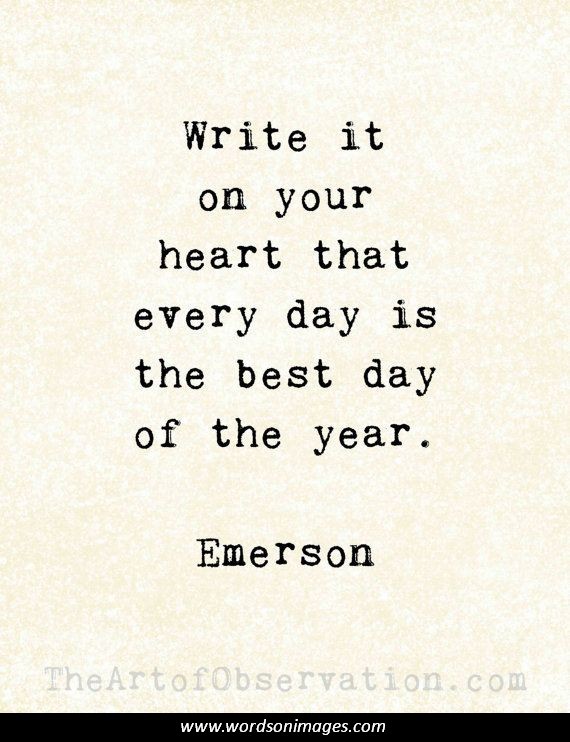 Write it
on your
heart that
every day is
the best day
of the year.
Emerson
TheArtofObservation.com
www.wordsonimages.com